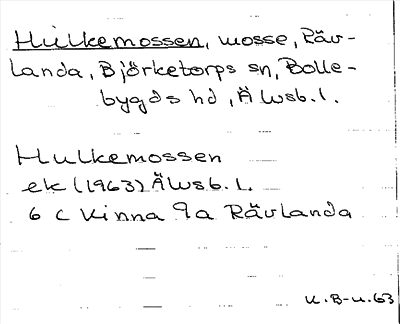 Hulkemossen, mosse, Räv-
landa, Björketorps sn, Bolle-
bygds hd, Älvsb. l.
Hulkemossen
ek (1963) Älvsb. L.
6 C Kinna 9a Rävlanda
U.B-u.63